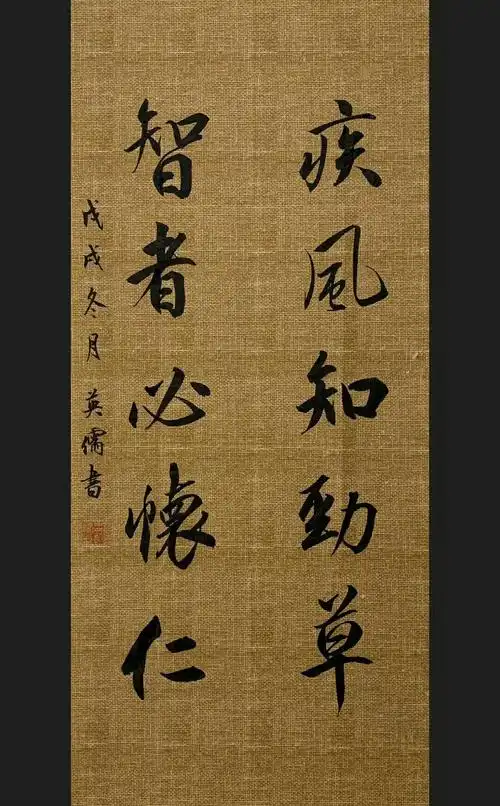 疾風知勁草
智者必懷仁
戊戌冬月 英儒書